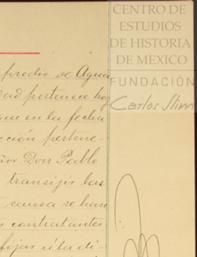 CENTRO DE
ESTUDIOS
DE HISTORIA
DE MEXICO
FUNDACIÓN
Carlos Slim
predio se
dad pertenece hoy
que en las fechas
cción pertene-
ñor Don Pablo
transijis las
causa se han
contratantes
fijar